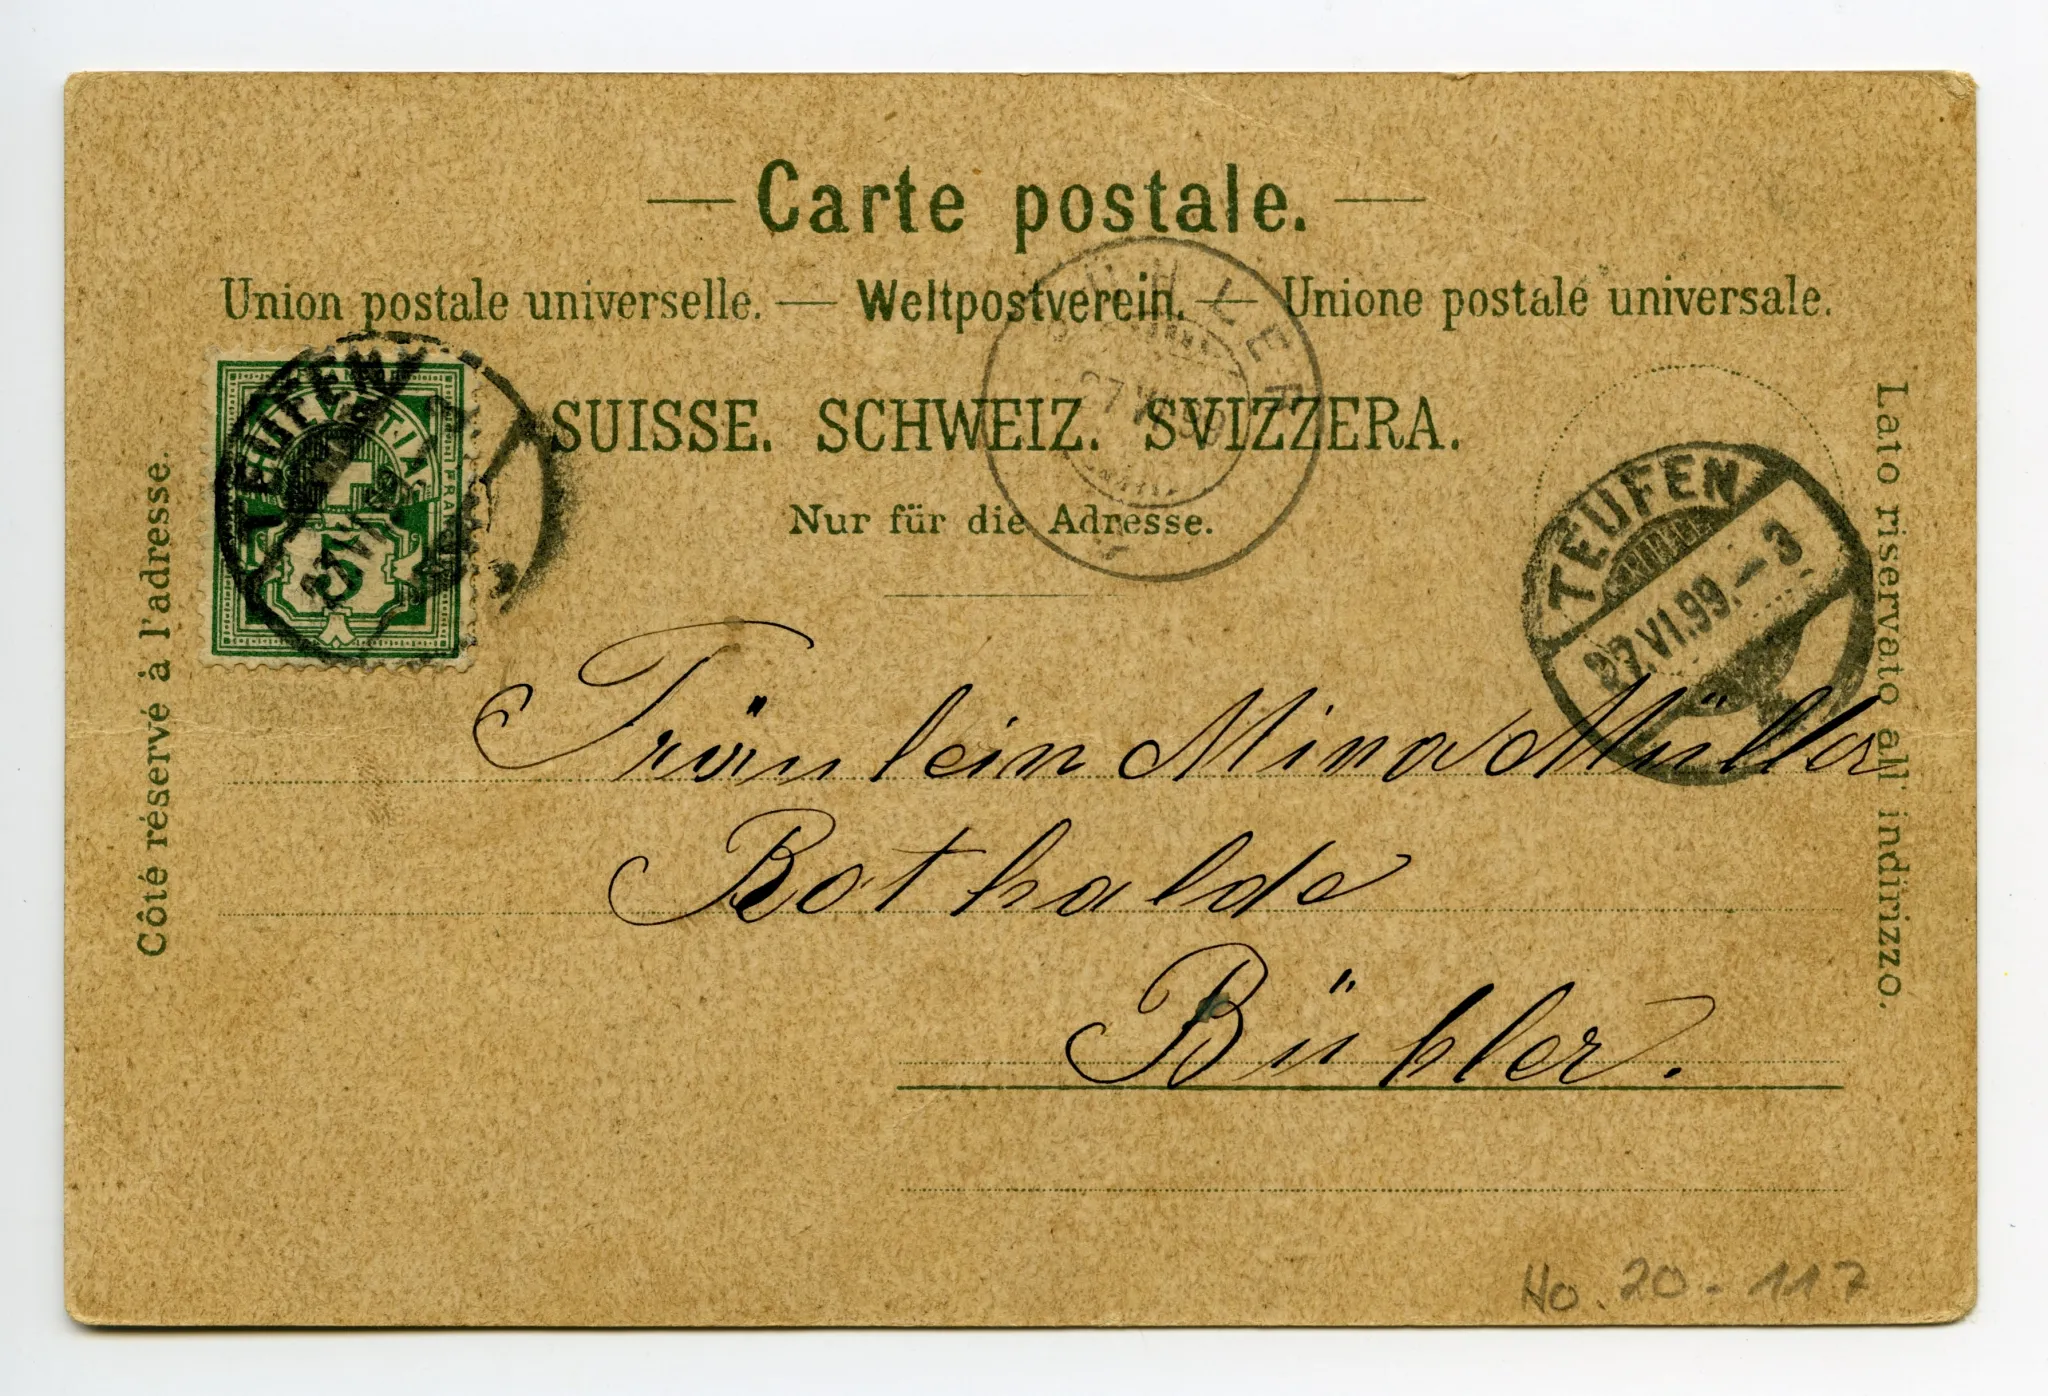 — Carte postale. —
Union postale universelle. — Weltpostverein. — Unione postale universale.
SUISSE. SCHWEIZ. SVIZZERA.
Nur für die Adresse.
Côté réservé à l'adresse.
Lato riservato all' indirizzo.
TEUFEN
27.VI.
FRANCO
5
BÜHLER
27.VI.99
TEUFEN
27.VI.99.–3
Fräulein Mina Müller
Rothalde
Bühler.
Ho. 20-117